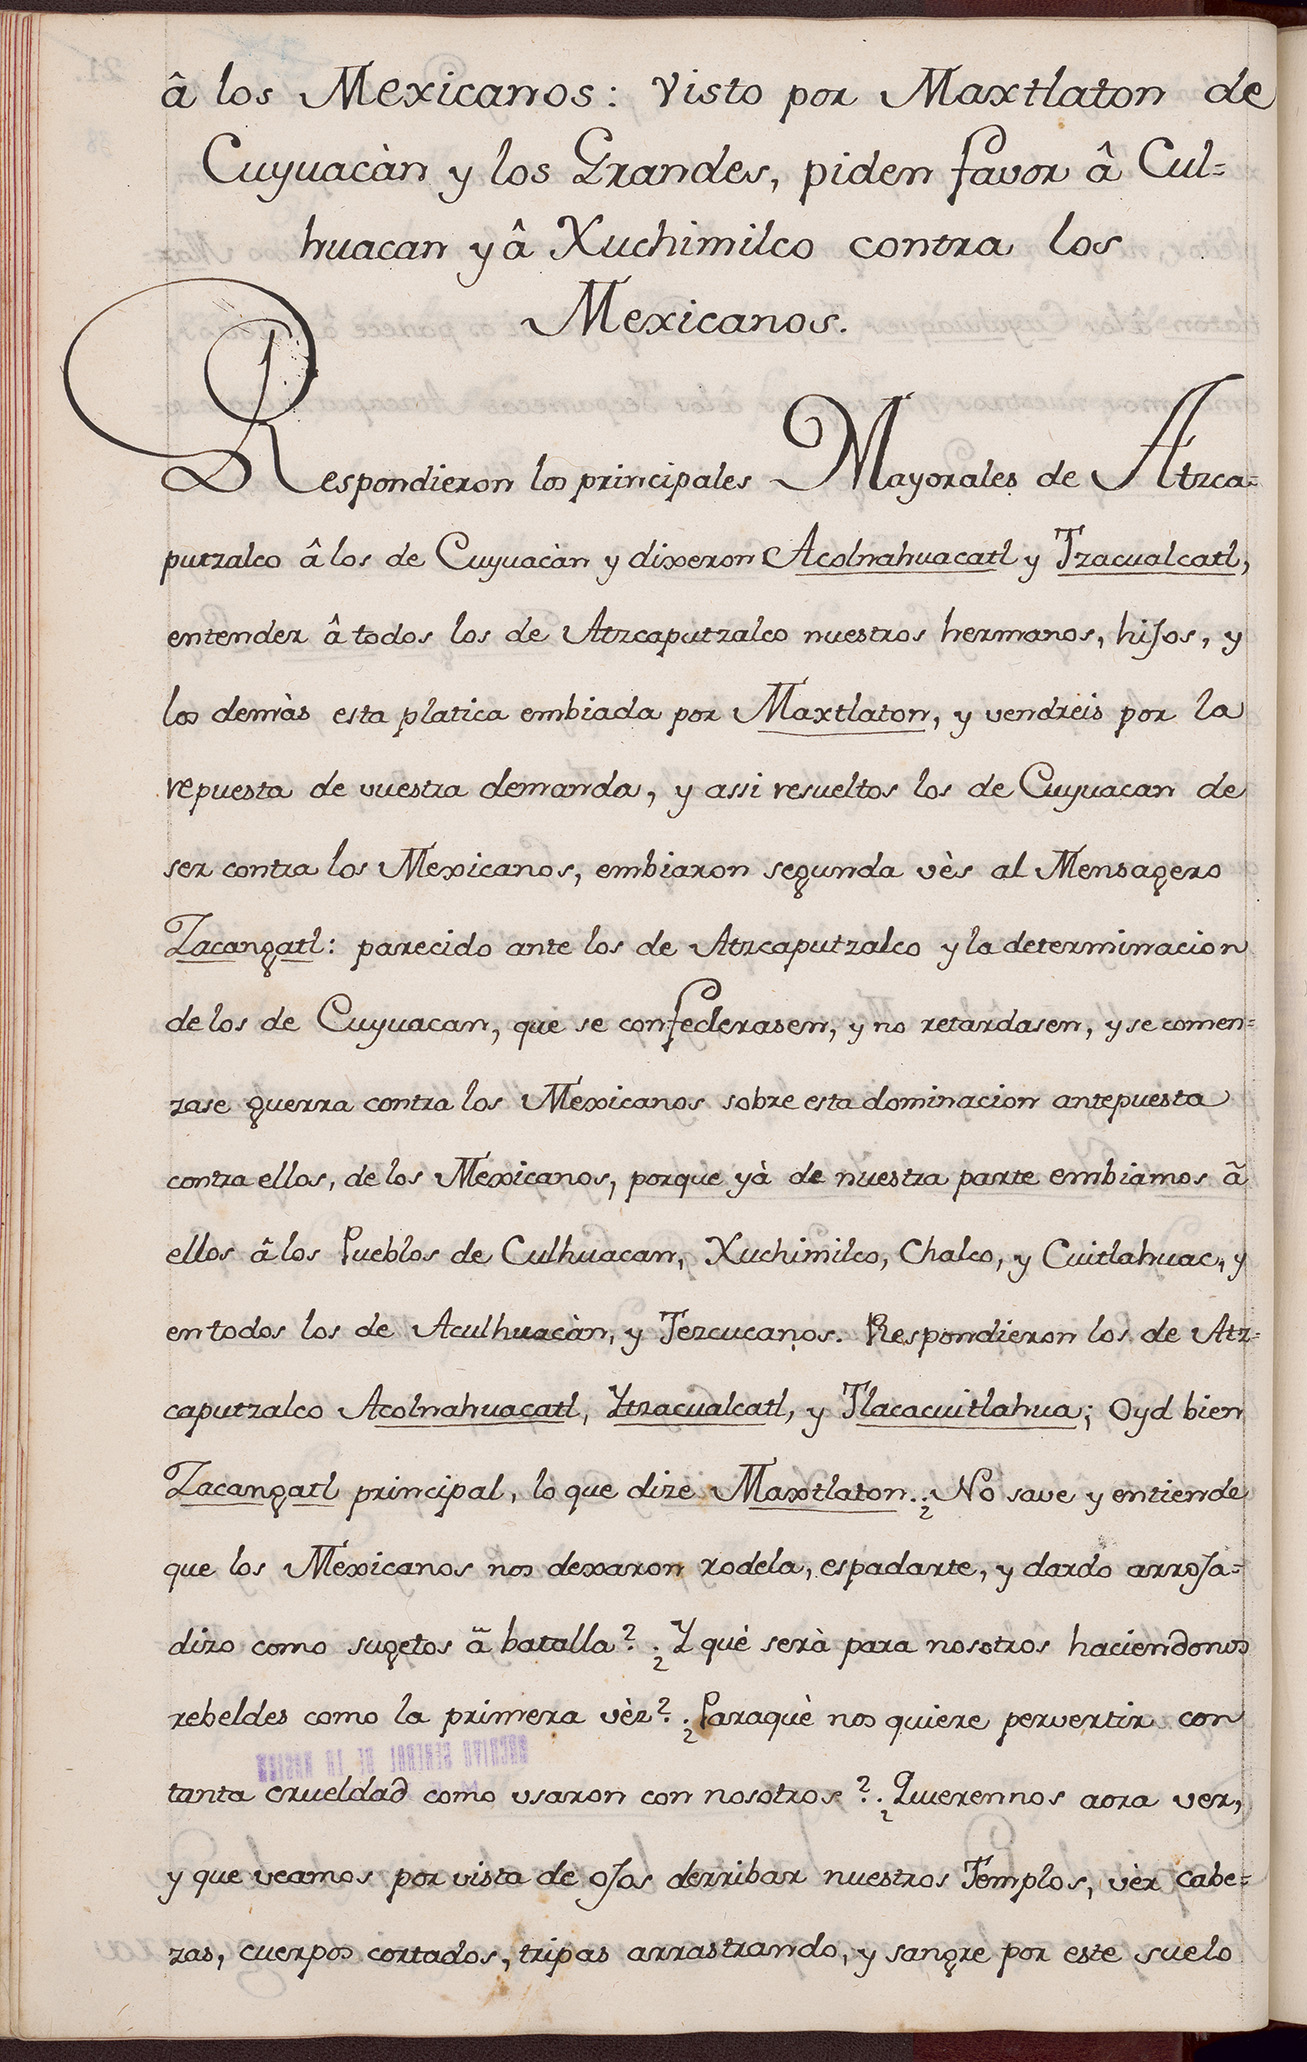 â los Mexicanos: Visto por Maxtlaton de
Cuyuacàn y los Grandes, piden favor â Cul=
huacan y â Xuchimilco contra los
Mexicanos.
Respondieron los principales Mayorales de Atzca=
putzalco â los de Cuyuacàn y dixeron Acolnahuacatl y Tzacualcatl,
entender â todos los de Atzcaputzalco nuestros hermanos, hijos, y
los demàs esta platica embiada por Maxtlaton, y vendreis por la
repuesta de vuestra demanda, y assi resueltos los de Cuyuacan de
ser contra los Mexicanos, embiaron segunda vès al Mensagero
Zacangatl: parecido ante los de Atzcaputzalco y la determinacion
de los de Cuyuacan, que se confederasen, y no retardasen, y se comen=
zase guerra contra los Mexicanos sobre esta dominacion antepuesta
contra ellos, de los Mexicanos, porque yà de nuestra parte embiamos ã
ellos â los Pueblos de Culhuacan, Xuchimilco, Chalco, y Cuitlahuac, y
en todos los de Aculhuacàn, y Tezcucanos. Respondieron los de Atz=
caputzalco Acolnahuacatl, Ytzacualcatl, y Tlacacuitlahua; Oyd bien
Zacangatl principal, lo que dize Maxtlaton. ¿No save y entiende
que los Mexicanos nos dexaron rodela, espadarte, y dardo arroja=
dizo como sugetos ã batalla? ¿Y què serà para nosotros haciendonos
rebeldes como la primera vèz? ¿Paraquè nos quiere pervertir con
tanta crueldad como usaron con nosotros? ¿Quierennos aora ver,
y que veamos por vista de ojos derribar nuestros Templos, vèr cabe=
zas, cuerpos cortados, tripas arrastrando, y sangre por este suelo